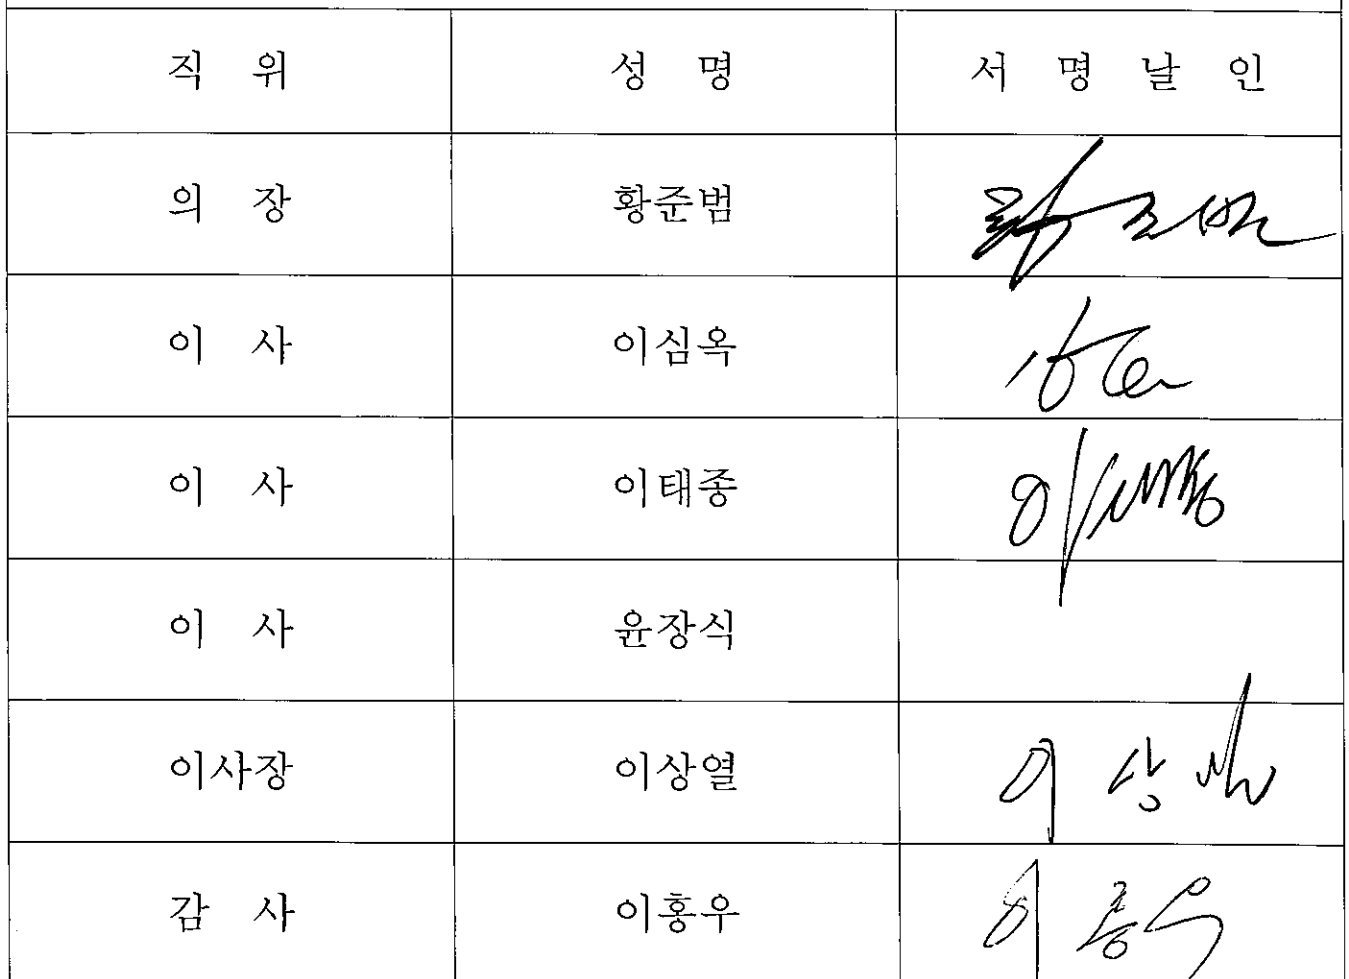 직 위 성 명 서 명 날 인
의 장 황준범
이 사 이심옥
이 사 이태종 이태종
이 사 윤장식
이사장 이상열 이상열
감 사 이홍우 이홍우